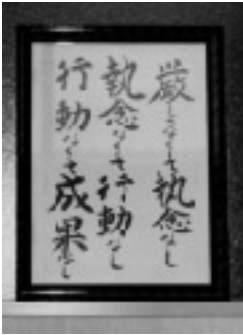 厳しさなくて執念なし
執念なくて行動なし
行動なくて成果なし